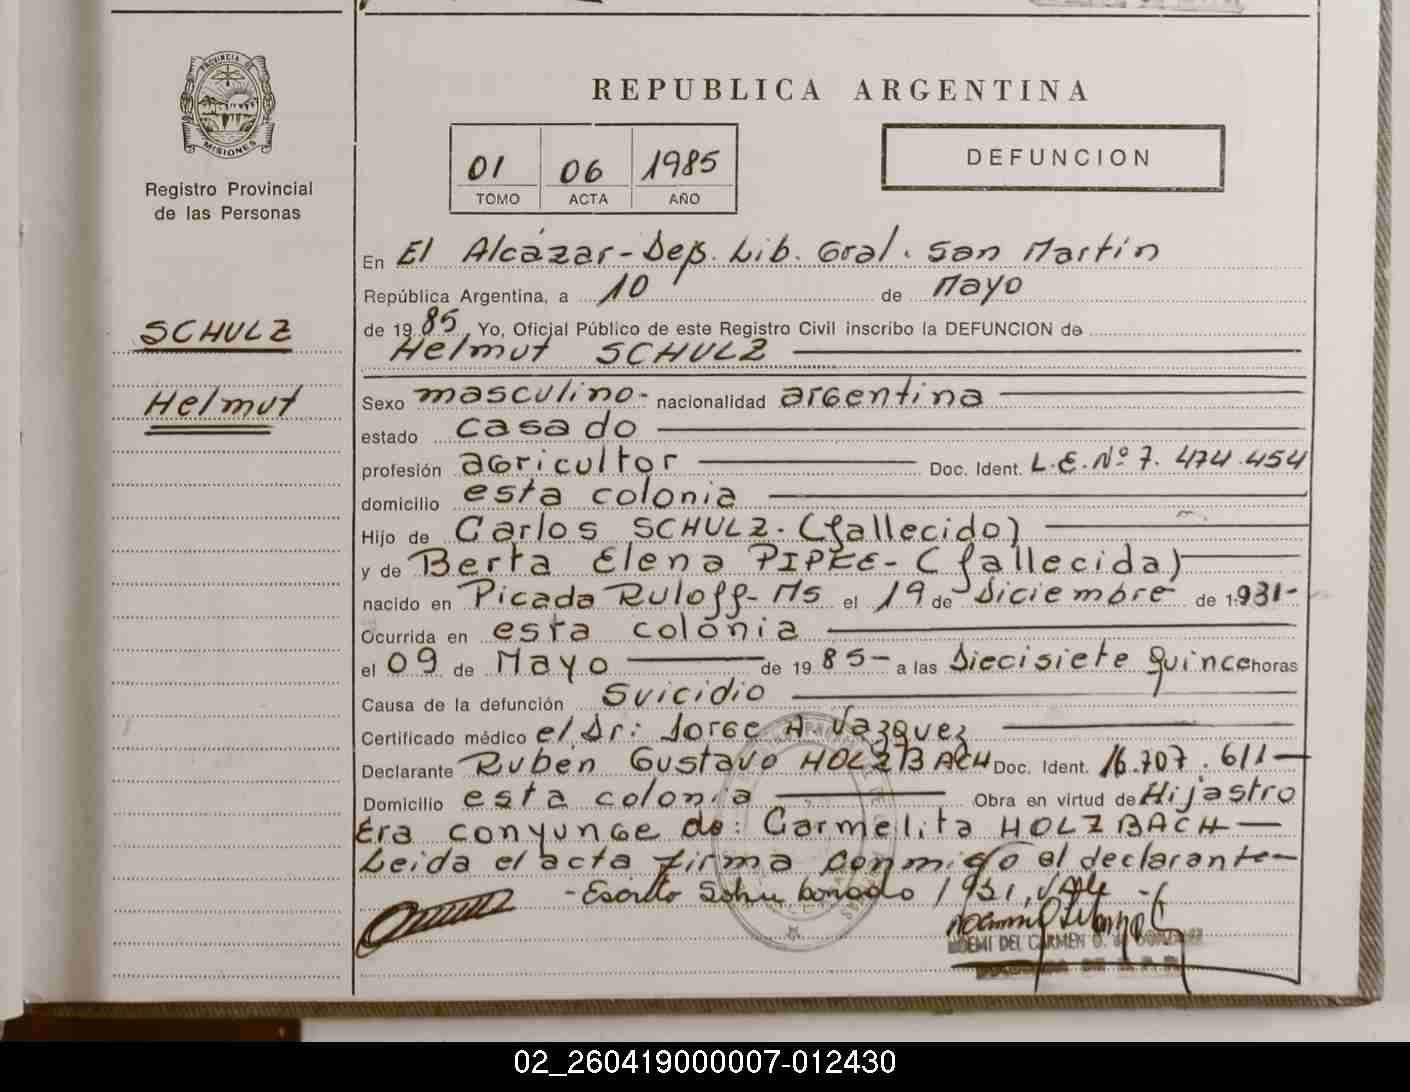 PROVINCIA DE
MISIONES
Registro Provincial
de las Personas
SCHULZ
Helmut
REPUBLICA ARGENTINA
01 06 1985
TOMO ACTA AÑO
DEFUNCION
En El Alcázar - Dep. Lib. Gral. San Martín
República Argentina, a 10 de Mayo
de 1985 Yo, Oficial Público de este Registro Civil inscribo la DEFUNCION de
Helmut SCHULZ
Sexo masculino - nacionalidad argentina
estado casado
profesión agricultor Doc. Ident. L.E. Nº 7.474.454
domicilio esta colonia
Hijo de Carlos SCHULZ - (fallecido)
y de Berta Elena PIPKE - (fallecida)
nacido en Picada Ruloff - Ms el 19 de Diciembre de 1.931 -
Ocurrida en esta colonia
el 09 de Mayo de 1985 - a las Diecisiete quince horas
Causa de la defunción Suicidio
Certificado médico el Dr: Jorge A. Vazquez
Declarante Ruben Gustavo HOLZBACH Doc. Ident. 16.707.611
Domicilio esta colonia Obra en virtud de Hijastro
Era conyunge de: Carmelita HOLZBACH
Leida el acta firma conmigo el declarante -
- Escrito Sobre borrado 1931, Vale -
NOEMI DEL CARMEN
02_260419000007-012430